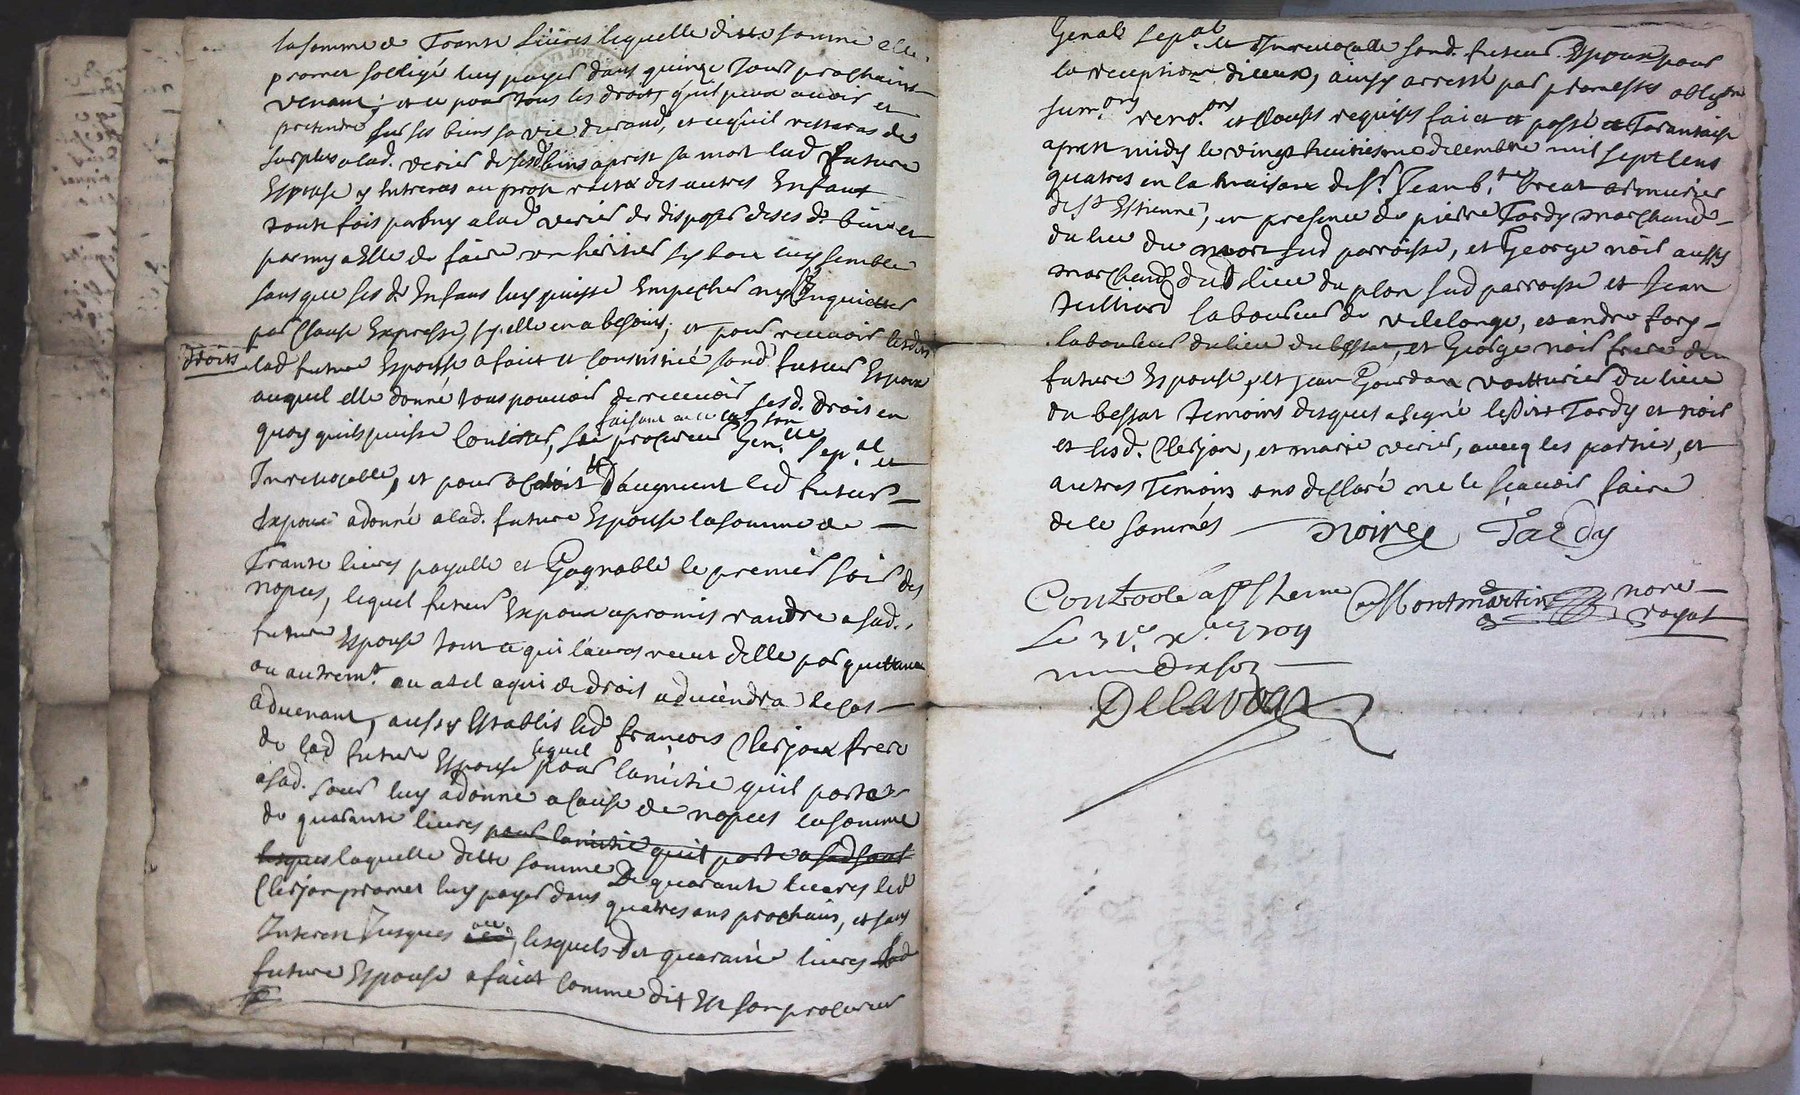 la somme de Trante Liures lequelle ditte somme elle
promet soblige luy payer dans quinze Jour prochains
venant; et ce pour tous les droits quil peux auoir et
pretendre sur ses biens sa vie durand, et ce quil resteras de
surplus a lad. verier de sesd biens aprest sa mort lad future
Espouse y Entreras au prop des autres Enfans
toute fois permy a lad verier de disposer de ses ds biens et
permy a Elle de faire un héritier sy bon luy semble
sans que ses ds Enfans luy puisse Empecher ny Inquietter
par Clause Expresse, sy elle en a besoins; et pour receuoir lesdits
droits lad future Espouse a faict et Constitué sond futeur Espoux
auquel elle donne tous pouuoir de receuoir sesd. Droit en
quoy quils puisse Conister, faisant en ce cas son
procureur Gen.lle sep.al et
Inreuocable, et pour dauguent led futeur
Expoux a donné a lad. future Espouse la somme de
Trante liures payable et Gagnable le premier soir des
nopces, lequel futeur Expoux a promis randre a sad.
future Espouse tout ce qui l'auras receu delle par quittance
ou autrem.t ou a tel a qui de droit aduiendra le cas
aduenant, aussy Establis led françois Clerjon frere
de lad future Espouse lequel pour lamitie quil porte
a sad. sœur luy a donné a cause de nopces la somme
de quarante liures pour lamitie quil porte a sad sœur
lesques laquelle ditte somme De quarante liures led
Clerjon promet luy payer dans quatres ans prochain, et sans
Interest Jusques , lesquels dit quarante liures lad
future Espouse a faict Comme dit Est son procureur
Genal sepal et Inreuocable sond. futeur Espoux pour
la reception diceux, ainsy arresté par promesses oblig.on
sum.ons reno.ons et Clauses requises faict et passé a Tarantaise
aprest midy le vingt huitiesme decembre mil sept Cens
quatres en la maison de S.r Jean b.te Creat armurier
de St Estienne, en presence de pierre Tardy marchand
du lieu du mort sud parroisse, et George noir aussy
marchand dud lieu du plon sud parroisse et Jean
Julliard laboureur de vilelonge, et andre fory
laboureur du lieu du bessat, et George noir frere de
future Espouse, et Jean Gourdon voitturier du lieu
du bessat Temoins desquels a signé lesdits Tardy et noir
et lesd. Clerjon, et marie verier, auecq les parties, et
autres Temoins ons desclaré ne le sçauoir faire
de ce sommés noirey Tardy
Controolé a St Etienne De Montmartin nore
Le 31.e x.bre 1704 royal
Delavoa